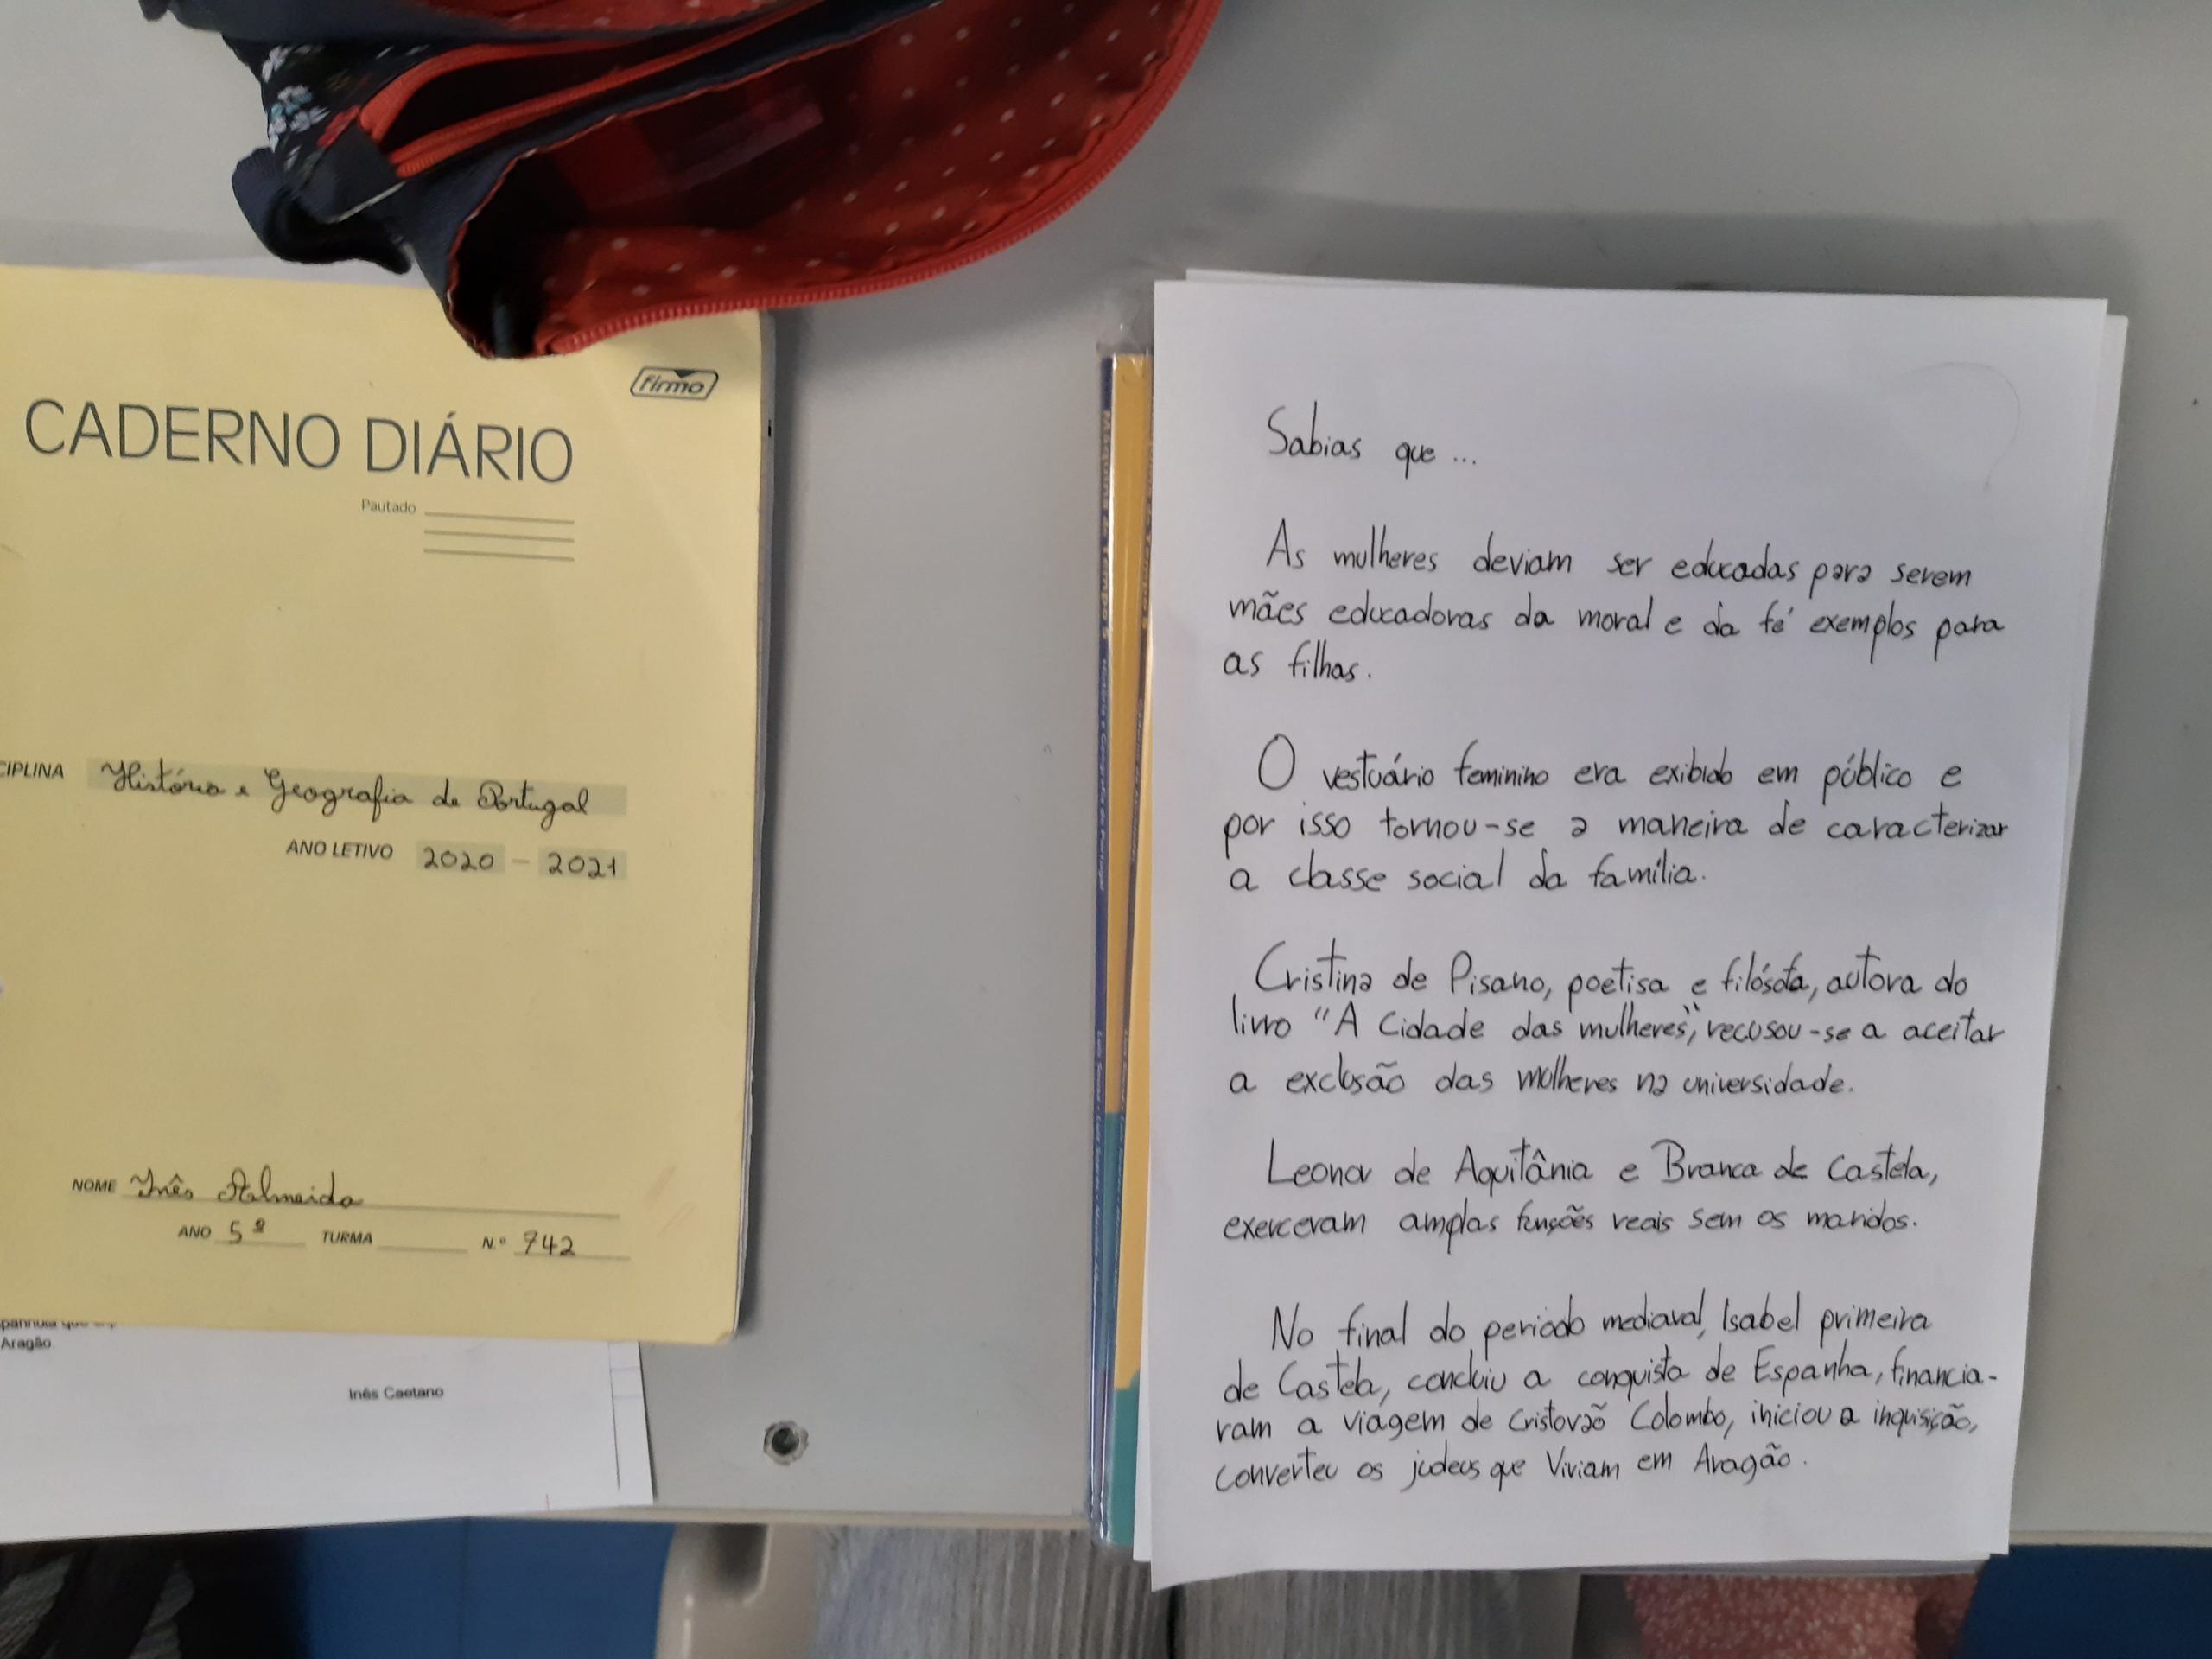 firmo
CADERNO DIÁRIO
Pautado
CIPLINA História e Geografia de Portugal
ANO LETIVO 2020 - 2021
NOME Inês Almeida
ANO 5º TURMA N.º 742
Aragão
Inês Caetano
Máquina do Tempo 5 História e Geografia de Portugal
Sabias que ...
As mulheres deviam ser educadas para serem
mães educadoras da moral e da fé exemplos para
as filhas.
O vestuário feminino era exibido em público e
por isso tornou-se a maneira de caracterizar
a classe social da família.
Cristina de Pisano, poetisa e filósofa, autora do
livro "A Cidade das mulheres", recusou-se a aceitar
a exclusão das mulheres na universidade.
Leonor de Aquitânia e Branca de Castela,
exerceram amplas funções reais sem os maridos.
No final do periodo mediaval, Isabel primeira
de Castela, concluiu a conquista de Espanha, financia-
ram a viagem de Cristovão Colombo, iniciou a inquisição,
converteu os judeus que Viviam em Aragão.